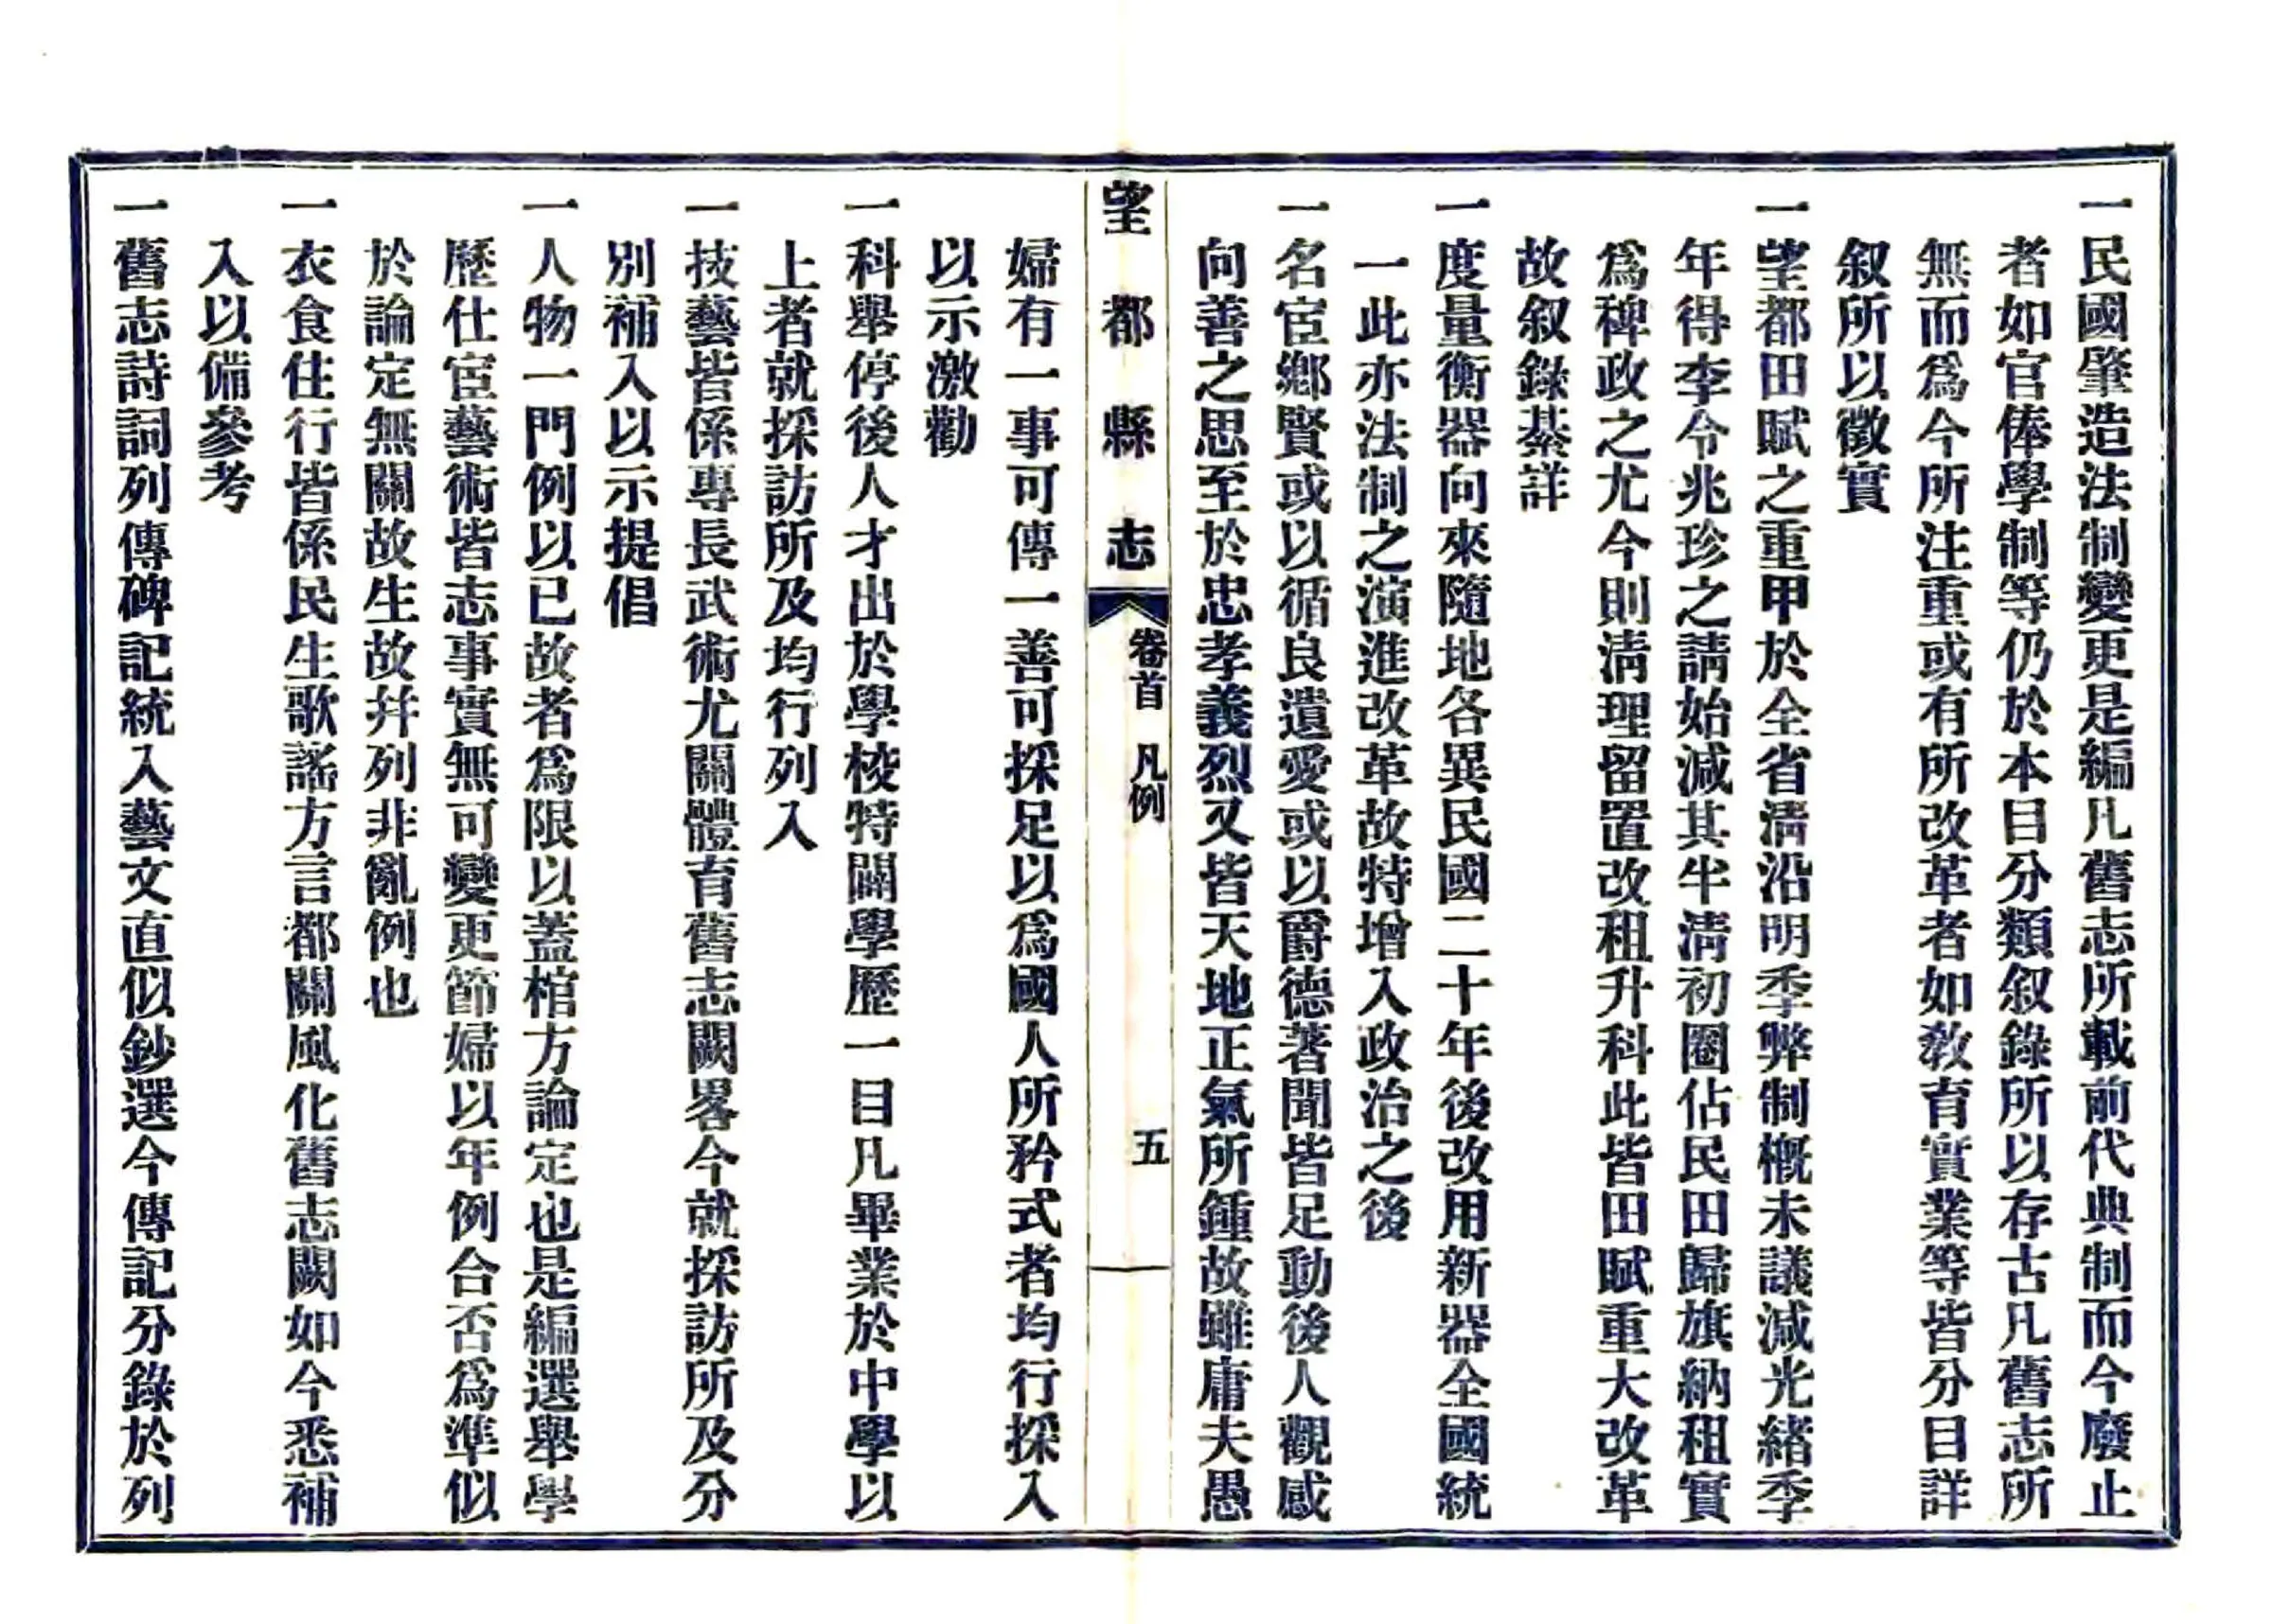 一民國肇造法制變更是編凡舊志所載前代典制而今廢止
者如官俸學制等仍於本目分類叙錄所以存古凡舊志所
無而爲今所注重或有所改革者如敎育實業等皆分目詳
叙所以徵實
一望都田賦之重甲於全省淸沿明季弊制槪未議減光緒季
年得李令兆珍之請始減其半淸初圈佔民田歸旗納租實
爲稗政之尤今則淸理留置改租升科此皆田賦重大改革
故叙錄綦詳
一度量衡器向來隨地各異民國二十年後改用新器全國統
一此亦法制之演進改革故特增入政治之後
一名宦鄕賢或以循良遺愛或以爵德著聞皆足動後人觀感
向善之思至於忠孝義烈又皆天地正氣所鍾故雖庸夫愚
望都縣志
卷首 凡例
五
婦有一事可傳一善可採足以爲國人所矜式者均行採入
以示激勸
一科舉停後人才出於學校特闢學歷一目凡畢業於中學以
上者就採訪所及均行列入
一技藝皆係專長武術尤關體育舊志闕畧今就採訪所及分
別補入以示提倡
一人物一門例以已故者爲限以蓋棺方論定也是編選舉學
歷仕宦藝術皆志事實無可變更節婦以年例合否爲準似
於論定無關故生故幷列非亂例也
一衣食住行皆係民生歌謠方言都關風化舊志闕如今悉補
入以備參考
一舊志詩詞列傳碑記統入藝文直似鈔選今傳記分錄於列